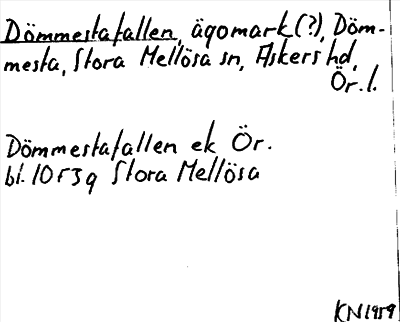 Dömmestafallen, ägomark(?), Döm-
mesta, Stora Mellösa sn, Askers hd,
Ör. l.
Dömmestafallen ek Ör.
bl. 10F3g Stora Mellösa
KN1959